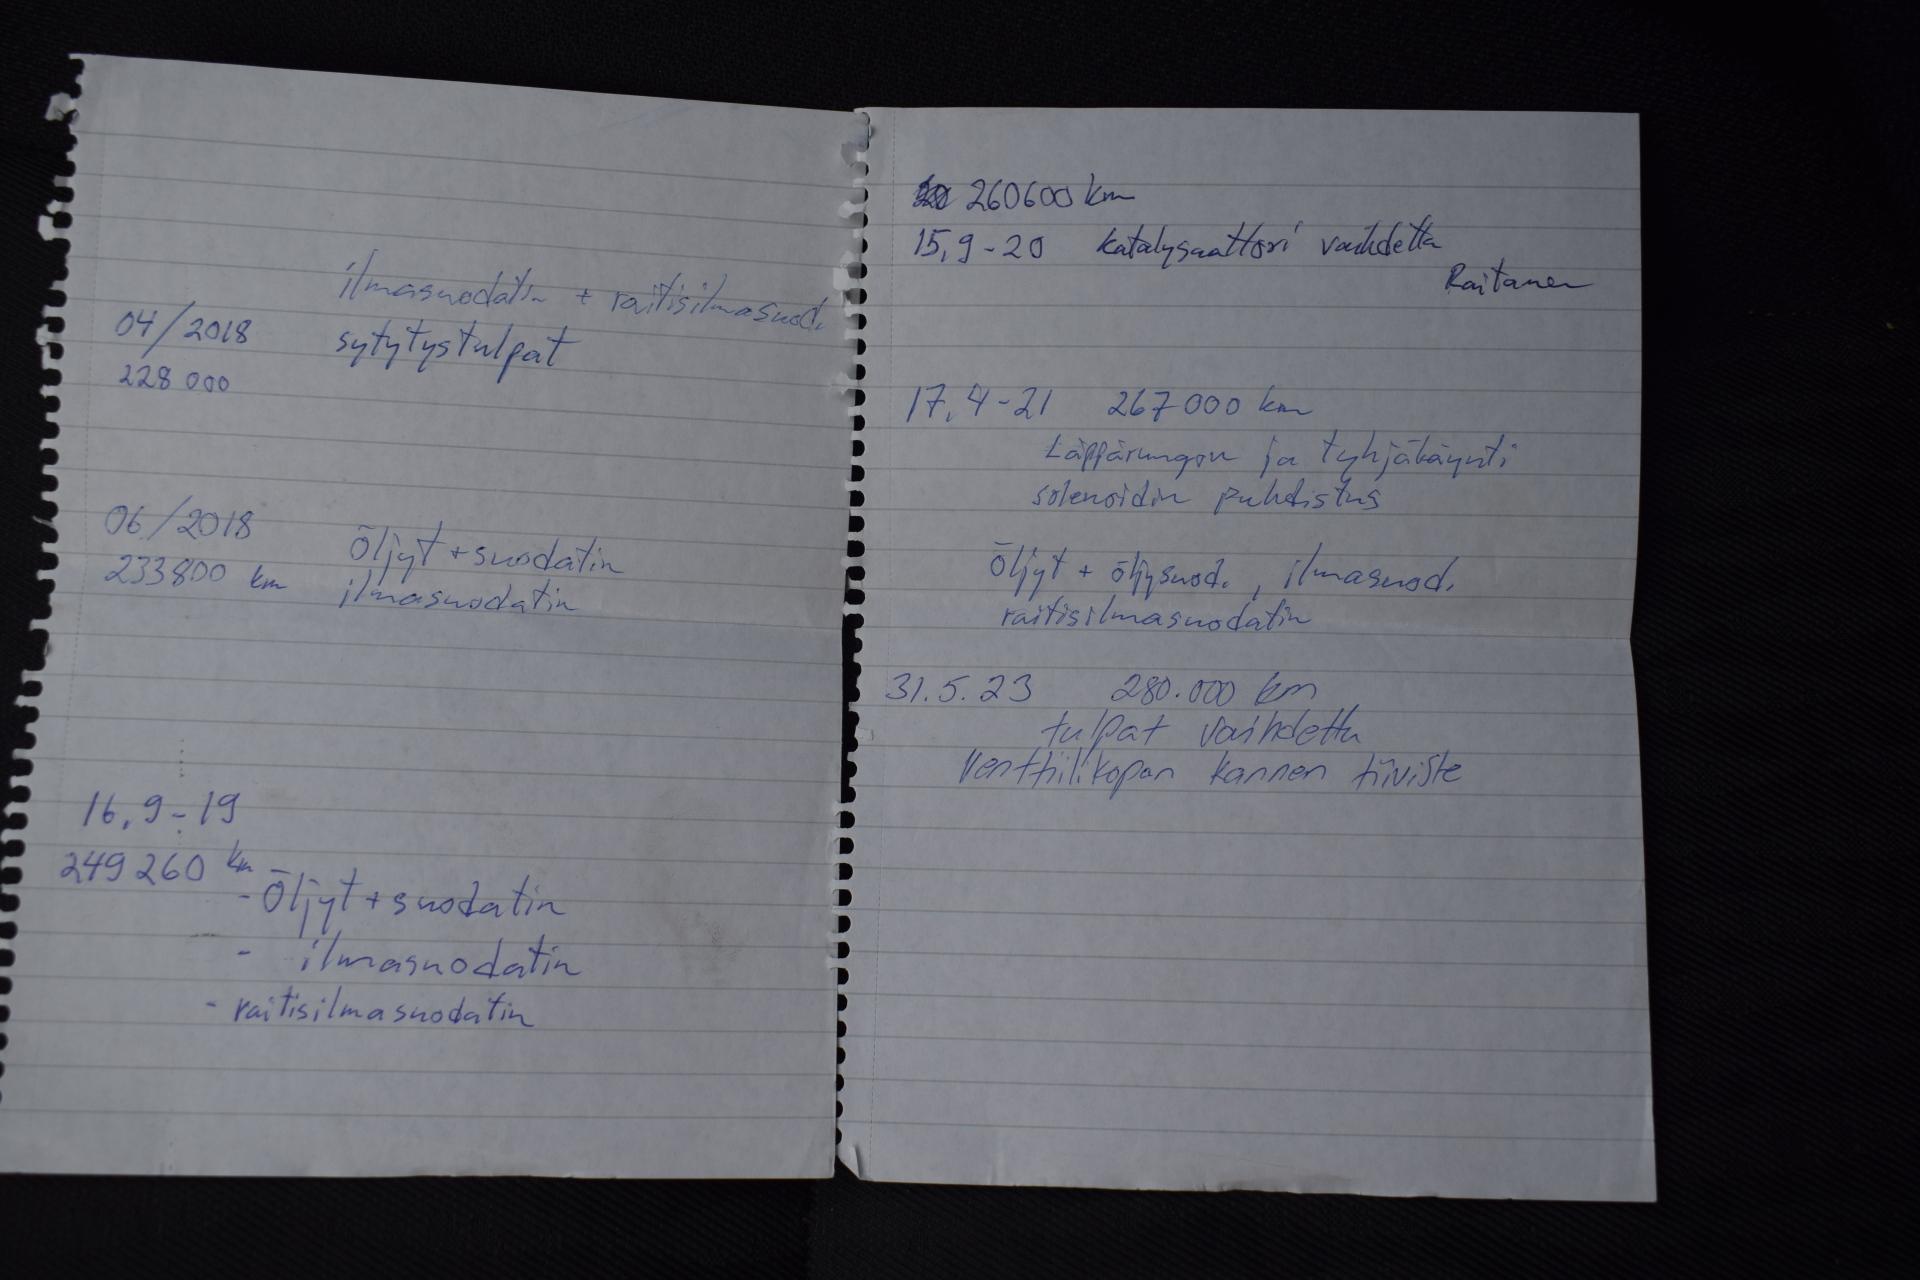 ilmasuodatin + raitisilmasuod.
04/2018 sytytystulpat
228 000
06/2018 Öljyt + suodatin
233800 km ilmasuodatin
16.9-19
249260 km
- Öljyt + suodatin
- ilmasuodatin
- raitisilmasuodatin
260600 km
15.9-20 katalysaattori vaihdettu
Raitanen
17.4-21 267000 km
Läppärungon ja tyhjäkäynti
solenoidin puhdistus
Öljyt + öljysuod., ilmasuod.
raitisilmasuodatin
31.5.23 280.000 km
tulpat vaihdettu
Venttiilikopan kannen tiiviste